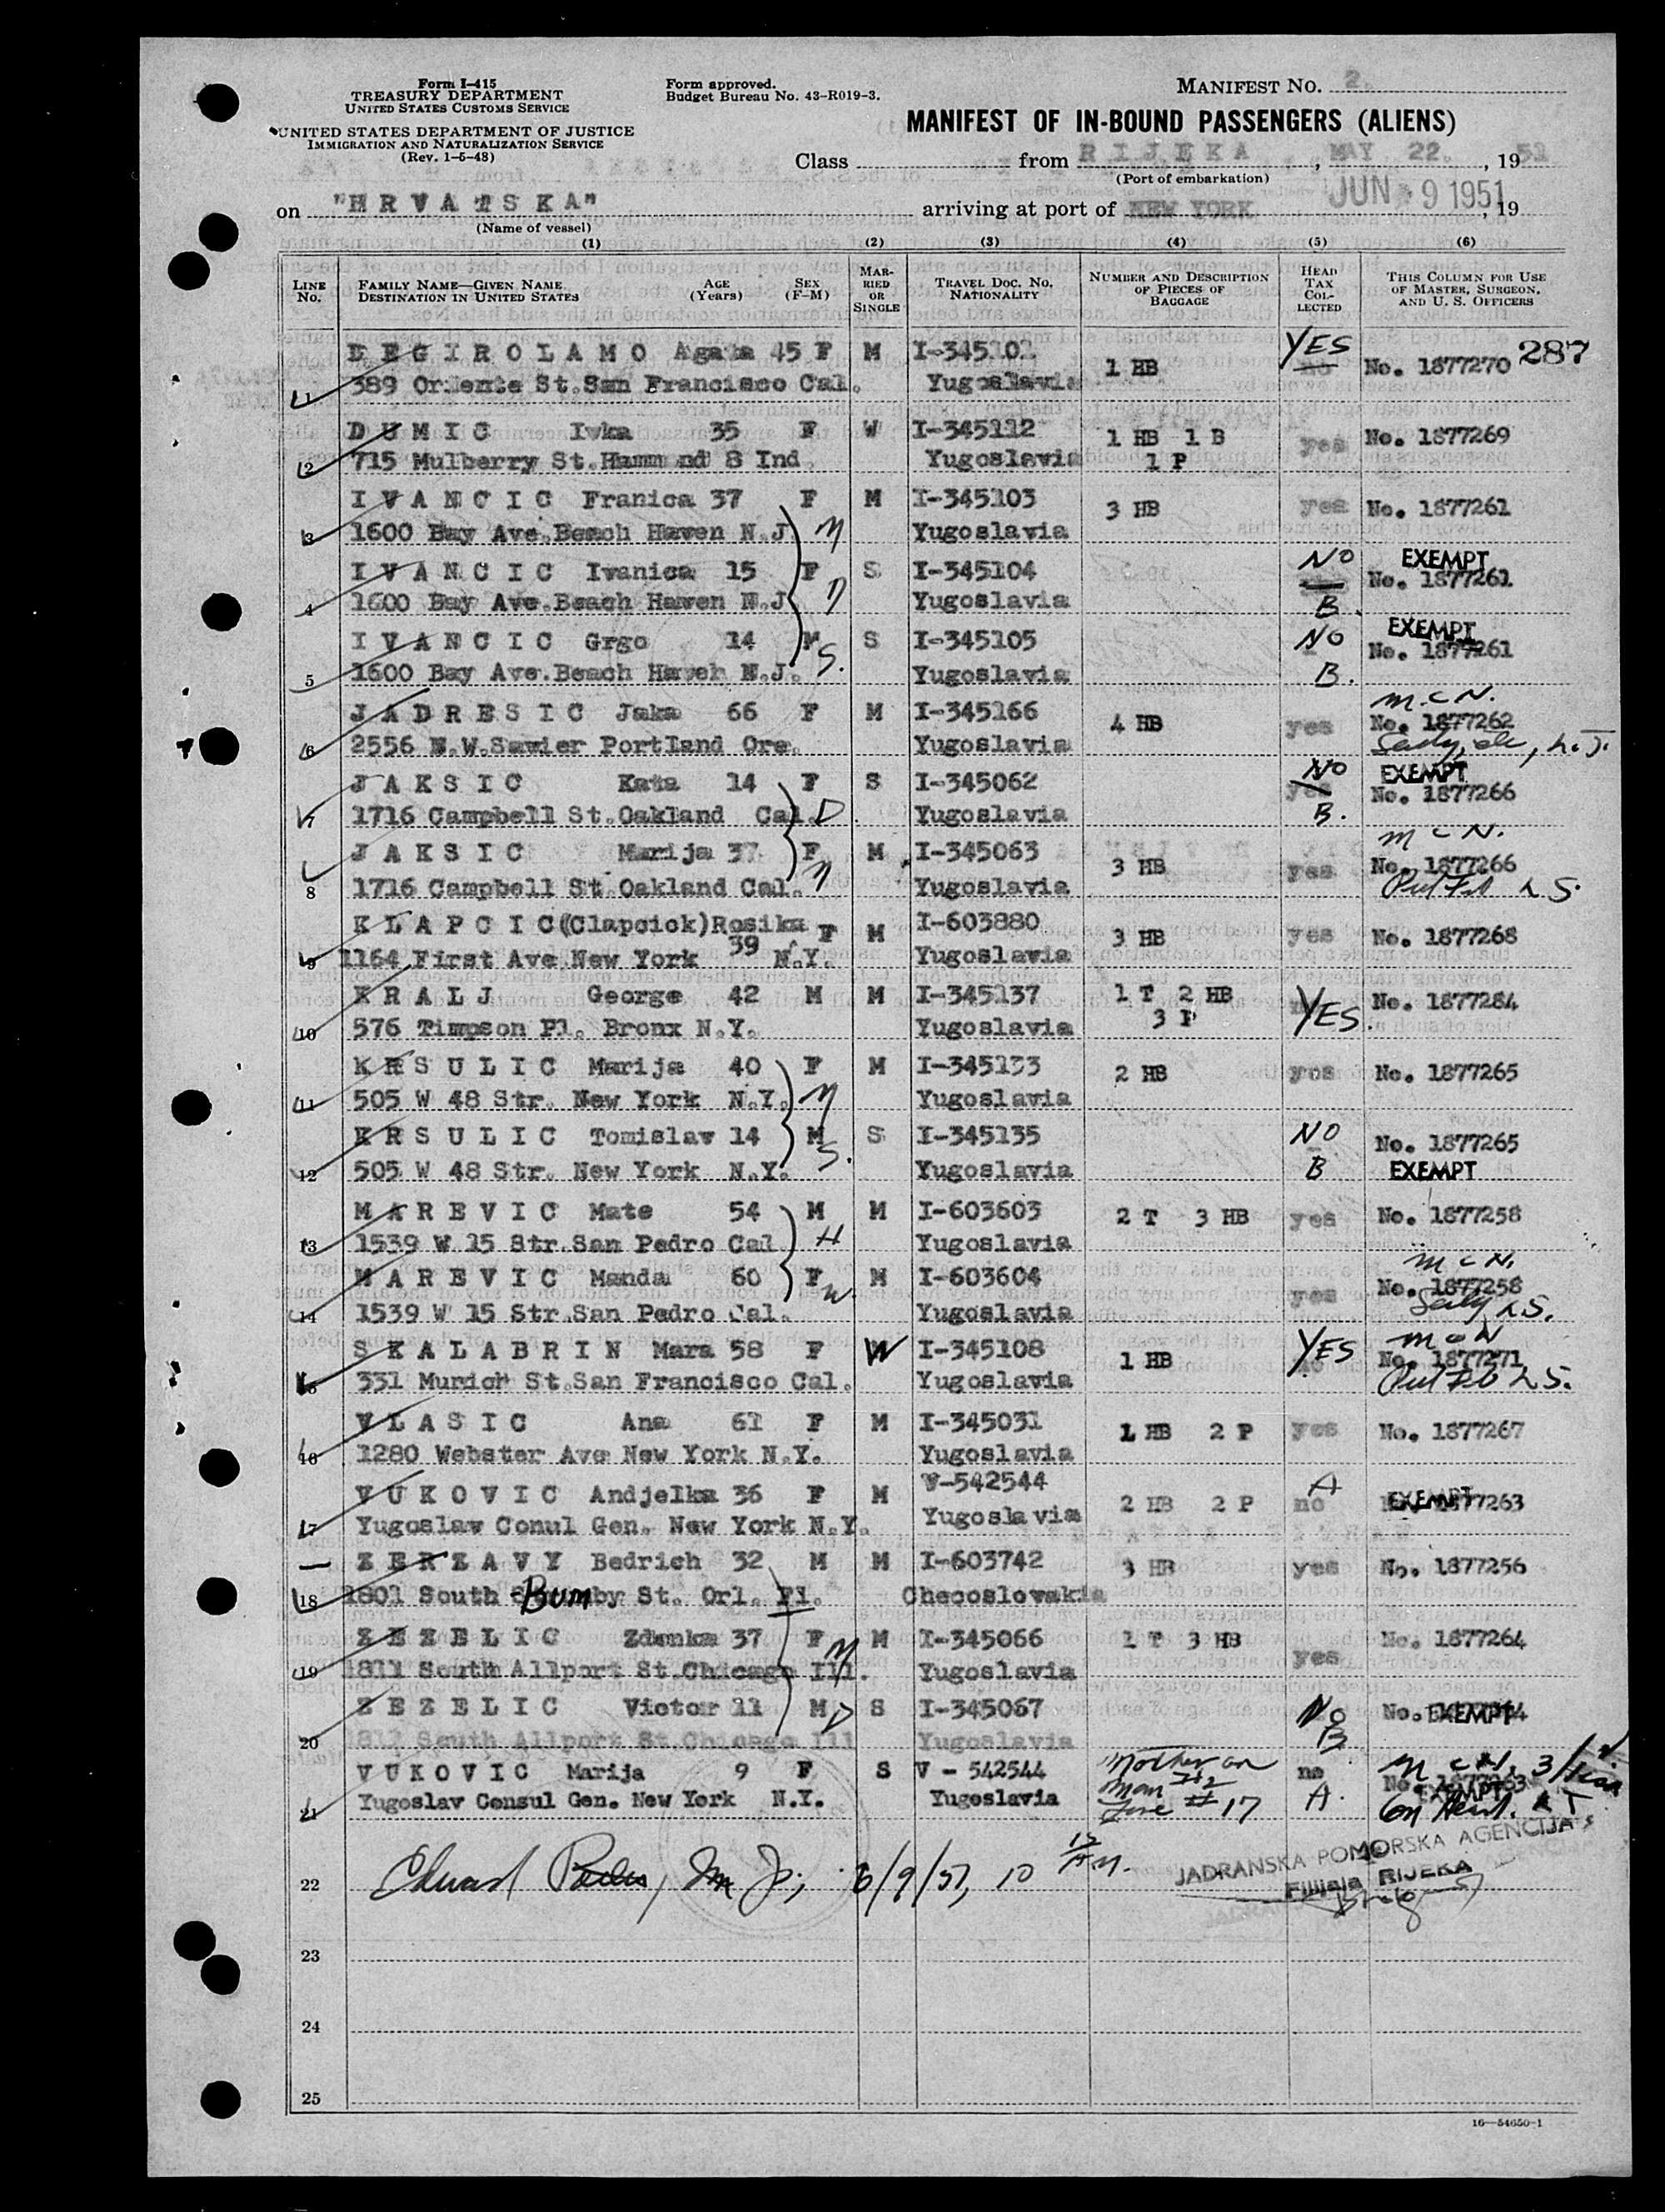 Form I-415
TREASURY DEPARTMENT
UNITED STATES CUSTOMS SERVICE
UNITED STATES DEPARTMENT OF JUSTICE
IMMIGRATION AND NATURALIZATION SERVICE
(Rev. 1-5-48)
Form approved.
Budget Bureau No. 43-R019-3.
MANIFEST NO. 2
MANIFEST OF IN-BOUND PASSENGERS (ALIENS)
Class from RIJEKA, MAY 22, 1951
(Port of embarkation)
on "HRVATSKA" arriving at port of NEW YORK JUN 9 1951, 19
(Name of vessel)
(1) (2) (3) (4) (5) (6)
LINE No. FAMILY NAME—GIVEN NAME DESTINATION IN UNITED STATES AGE (Years) SEX (F-M) MARRIED OR SINGLE TRAVEL DOC. NO. NATIONALITY NUMBER AND DESCRIPTION OF PIECES OF BAGGAGE HEAD TAX COLLECTED THIS COLUMN FOR USE OF MASTER, SURGEON, AND U. S. OFFICERS
DEGIROLAMO Agata 45 F M I-345101 1 HB YES No. 1877270 287
1 389 Oriente St.San Francisco Cal. Yugoslavia
DUMIC Ivka 35 F W I-345112 1 HB 1 B yes No. 1877269
2 715 Mulberry St.Hammond 8 Ind. Yugoslavia 1 P
IVANCIC Franica 37 F M I-345103 3 HB yes No. 1877261
3 1600 Bay Ave.Beach Haven N.J. M Yugoslavia
IVANCIC Ivanica 15 F S I-345104 NO EXEMPT No. 1877261
4 1600 Bay Ave.Beach Haven N.J. D Yugoslavia B.
IVANCIC Grgo 14 M S I-345105 NO EXEMPT No. 1877261
5 1600 Bay Ave.Beach Haven N.J. S. Yugoslavia B.
JADRESIC Jaka 66 F M I-345166 4 HB yes M.C.N. No. 1877262
6 2556 N.W.Savier Portland Ore. Yugoslavia
JAKSIC Kata 14 F S I-345062 NO yes EXEMPT No. 1877266
7 1716 Campbell St.Oakland Cal. D Yugoslavia B.
JAKSIC Marija 37 F M I-345063 3 HB yes M C N. No. 1877266
8 1716 Campbell St.Oakland Cal. M Yugoslavia
KLAPCIC (Clapcick)Rosika F M I-603880 3 HB yes No. 1877268
9 1164 First Ave.New York 39 N.Y. Yugoslavia
KRALJ George 42 M M I-345137 1 T 2 HB YES. No. 1877284
10 576 Timpson Pl. Bronx N.Y. Yugoslavia 3 P
KRSULIC Marija 40 F M I-345133 2 HB yes No. 1877265
11 505 W 48 Str. New York N.Y. M Yugoslavia
KRSULIC Tomislav 14 M S I-345135 NO No. 1877265
12 505 W 48 Str. New York N.Y. S. Yugoslavia B EXEMPT
MAREVIC Mate 54 M M I-603603 2 T 3 HB yes No. 1877258
13 1539 W 15 Str.San Pedro Cal H Yugoslavia
MAREVIC Manda 60 F M I-603604 yes M C N. No. 1877258
14 1539 W 15 Str.San Pedro Cal. W Yugoslavia
SKALABRIN Mara 58 F W I-345108 1 HB YES M C N No. 1877271
15 331 Munich St.San Francisco Cal. Yugoslavia
VLASIC Ana 61 F M I-345031 1 HB 2 P yes No. 1877267
16 1280 Webster Ave New York N.Y. Yugoslavia
VUKOVIC Andjelka 36 F M V-542544 2 HB 2 P no A EXEMPT 1877263
17 Yugoslav Conul Gen. New York N.Y. Yugoslavia
ZERZAVY Bedrich 32 M M I-603742 3 HB yes No. 1877256
18 1801 South Bumby St. Orl. Fl. Checoslovakia
ZEZELIC Zdenka 37 F M I-345066 1 T 3 HB yes No. 1877264
19 1811 South Allport St.Chicago Ill. M Yugoslavia
ZEZELIC Victor 11 M S I-345067 No No. EXEMPT
20 1811 South Allport St.Chicago Ill D Yugoslavia B
VUKOVIC Marija 9 F S V - 542544 Mother on Man #2 Line #17 no EXEMPT
21 Yugoslav Consul Gen. New York N.Y. Yugoslavia A.
22 Edward 6/9/51, 10 15 A.M.
JADRANSKA POMORSKA AGENCIJA
Filijala RIJEKA
23
24
25
16—54650-1